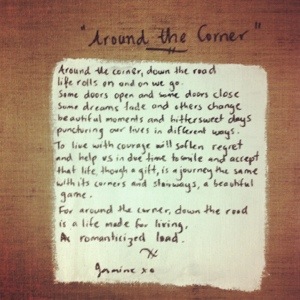 "Around the Corner"
Around the corner, down the road
life rolls on and on we go.
Some doors open and some doors close
Some dreams fade and others change
beautiful moments and bittersweet days
puncturing our lives in different ways.
To live with courage will soften regret
and help us in due time to smile and accept
that life, though a gift, is a journey the same
with its corners and stairways, a beautiful
game.
For around the corner, down the road
is a life made for living,
A romanticized load.
Jasmine xo